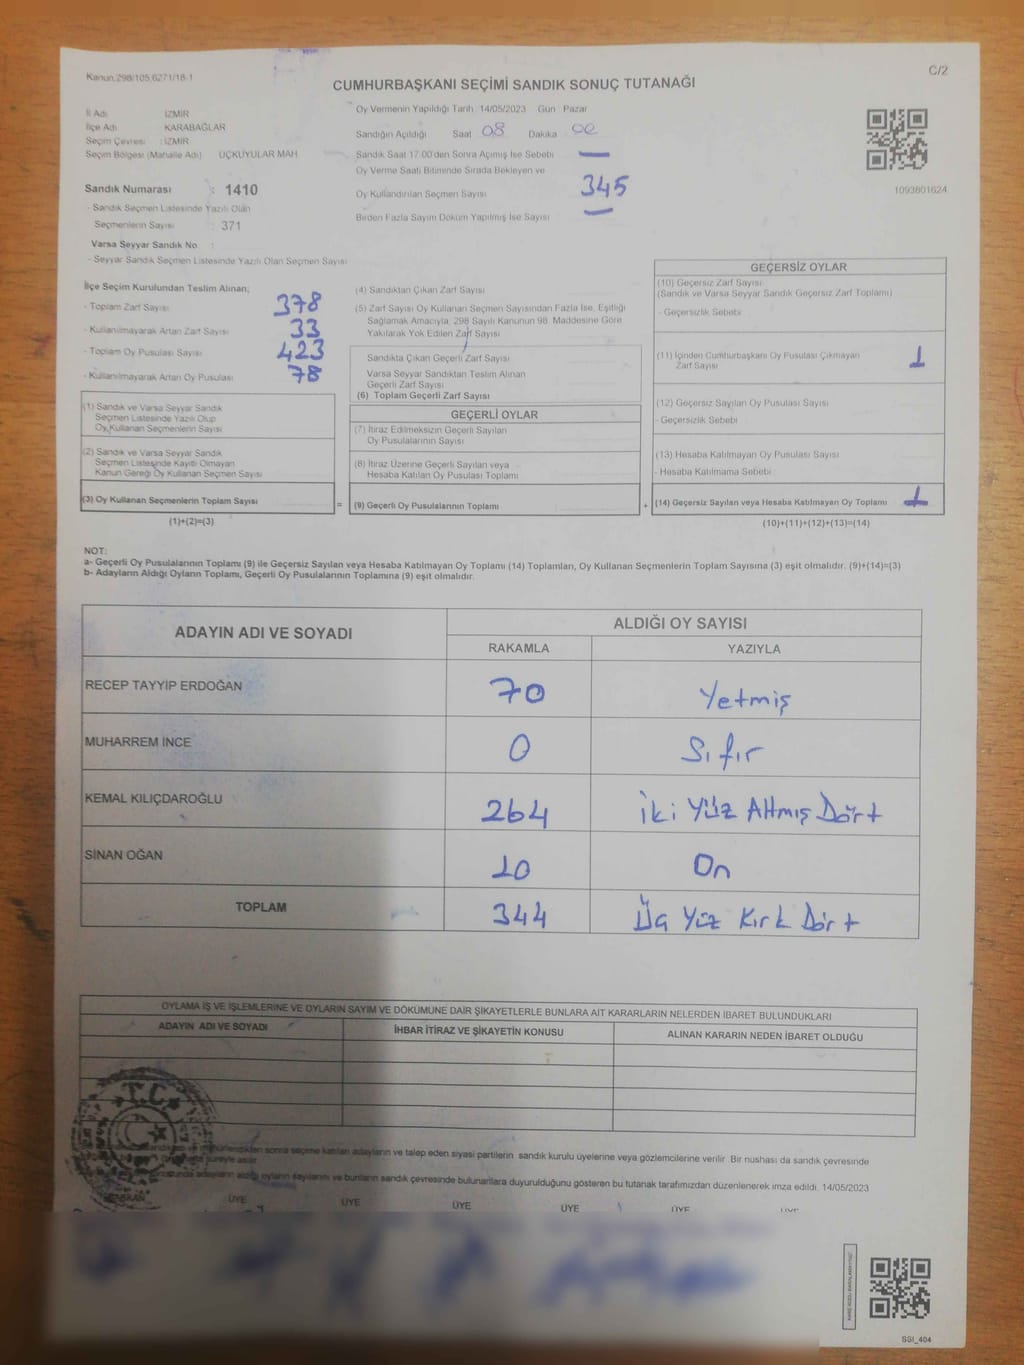 Kanun:298/105,6271/18-1
C/2
CUMHURBAŞKANI SEÇİMİ SANDIK SONUÇ TUTANAĞI
İl Adı : İZMİR
İlçe Adı : KARABAĞLAR
Seçim Çevresi : İZMİR
Seçim Bölgesi (Mahalle Adı) : ÜÇKUYULAR MAH
Sandık Numarası : 1410
- Sandık Seçmen Listesinde Yazılı Olan
Seçmenlerin Sayısı : 371
Varsa Seyyar Sandık No :
- Seyyar Sandık Seçmen Listesinde Yazılı Olan Seçmen Sayısı
Oy Vermenin Yapıldığı Tarih 14/05/2023 Gün Pazar
Sandığın Açıldığı Saat 08 Dakika 00
Sandık Saat 17:00'den Sonra Açılmış İse Sebebi —
Oy Verme Saati Bitiminde Sırada Bekleyen ve
Oy Kullandırılan Seçmen Sayısı 345
Birden Fazla Sayım Döküm Yapılmış İse Sayısı —
1093801624
İlçe Seçim Kurulundan Teslim Alınan;
- Toplam Zarf Sayısı 378
- Kullanılmayarak Artan Zarf Sayısı 33
- Toplam Oy Pusulası Sayısı 423
- Kullanılmayarak Artan Oy Pusulası 78
(1) Sandık ve Varsa Seyyar Sandık
Seçmen Listesinde Yazılı Olup
Oy Kullanan Seçmenlerin Sayısı
(2) Sandık ve Varsa Seyyar Sandık
Seçmen Listesinde Kayıtlı Olmayan
Kanun Gereği Oy Kullanan Seçmen Sayısı
(3) Oy Kullanan Seçmenlerin Toplam Sayısı =
(1)+(2)=(3)
(4) Sandıktan Çıkan Zarf Sayısı
(5) Zarf Sayısı Oy Kullanan Seçmen Sayısından Fazla İse, Eşitliği
Sağlamak Amacıyla, 298 Sayılı Kanunun 98. Maddesine Göre
Yakılarak Yok Edilen Zarf Sayısı
Sandıkta Çıkan Geçerli Zarf Sayısı
Varsa Seyyar Sandıktan Teslim Alınan
Geçerli Zarf Sayısı
(6) Toplam Geçerli Zarf Sayısı
GEÇERLİ OYLAR
(7) İtiraz Edilmeksizin Geçerli Sayılan
Oy Pusulalarının Sayısı
(8) İtiraz Üzerine Geçerli Sayılan veya
Hesaba Katılan Oy Pusulası Toplamı
(9) Geçerli Oy Pusulalarının Toplamı +
GEÇERSİZ OYLAR
(10) Geçersiz Zarf Sayısı
(Sandık ve Varsa Seyyar Sandık Geçersiz Zarf Toplamı)
- Geçersizlik Sebebi
(11) İçinden Cumhurbaşkanı Oy Pusulası Çıkmayan
Zarf Sayısı 1
(12) Geçersiz Sayılan Oy Pusulası Sayısı
- Geçersizlik Sebebi
(13) Hesaba Katılmayan Oy Pusulası Sayısı
- Hesaba Katılmama Sebebi
(14) Geçersiz Sayılan veya Hesaba Katılmayan Oy Toplamı 1
(10)+(11)+(12)+(13)=(14)
NOT:
a- Geçerli Oy Pusulalarının Toplamı (9) ile Geçersiz Sayılan veya Hesaba Katılmayan Oy Toplamı (14) Toplamları, Oy Kullanan Seçmenlerin Toplam Sayısına (3) eşit olmalıdır. (9)+(14)=(3)
b- Adayların Aldığı Oyların Toplamı, Geçerli Oy Pusulalarının Toplamına (9) eşit olmalıdır.
ADAYIN ADI VE SOYADI
ALDIĞI OY SAYISI
RAKAMLA YAZIYLA
RECEP TAYYİP ERDOĞAN 70 Yetmiş
MUHARREM İNCE 0 Sıfır
KEMAL KILIÇDAROĞLU 264 İki Yüz Altmış Dört
SİNAN OĞAN 10 On
TOPLAM 344 Üç Yüz Kırk Dört
OYLAMA İŞ VE İŞLEMLERİNE VE OYLARIN SAYIM VE DÖKÜMÜNE DAİR ŞİKAYETLERLE BUNLARA AİT KARARLARIN NELERDEN İBARET BULUNDUKLARI
ADAYIN ADI VE SOYADI İHBAR İTİRAZ VE ŞİKAYETİN KONUSU ALINAN KARARIN NEDEN İBARET OLDUĞU
T.C.
sonra seçime katılan adayların ve talep eden siyasi partilerin sandık kurulu üyelerine veya gözlemcilerine verilir. Bir nüshası da sandık çevresinde
adayların aldığı oyların sayılarını ve bunların sandık çevresinde bulunanlara duyurulduğunu gösteren bu tutanak tarafımızdan düzenlenerek imza edildi. 14/05/2023
BAŞKAN ÜYE ÜYE ÜYE ÜYE ÜYE ÜYE
SSI_404